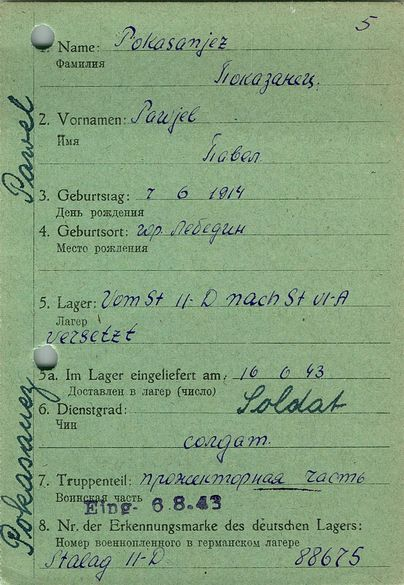 5
1. Name: Pokasanjez
Фамилия
Показанец.
2. Vornamen: Pawjel
Имя
Павел.
3. Geburtstag: 7 6 1914
День рождения
4. Geburtsort: гор. Лебедин
Место рождения
5. Lager: Vom St II-D nach St VI-A
Лагер
versetzt
5a. Im Lager eingeliefert am: 16 6 43
Доставлен в лагер (число)
6. Dienstgrad: Soldat
Чин
солдат.
7. Truppenteil: прожекторная часть
Воинская часть
Eing- 6.8.43
8. Nr. der Erkennungsmarke des deutschen Lagers:
Номер военнопленного в германском лагере
Stalag II-D 88675
Pawel
Pokasanez